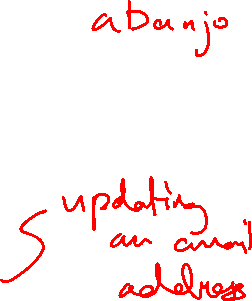 abanjo
updating
an email
address